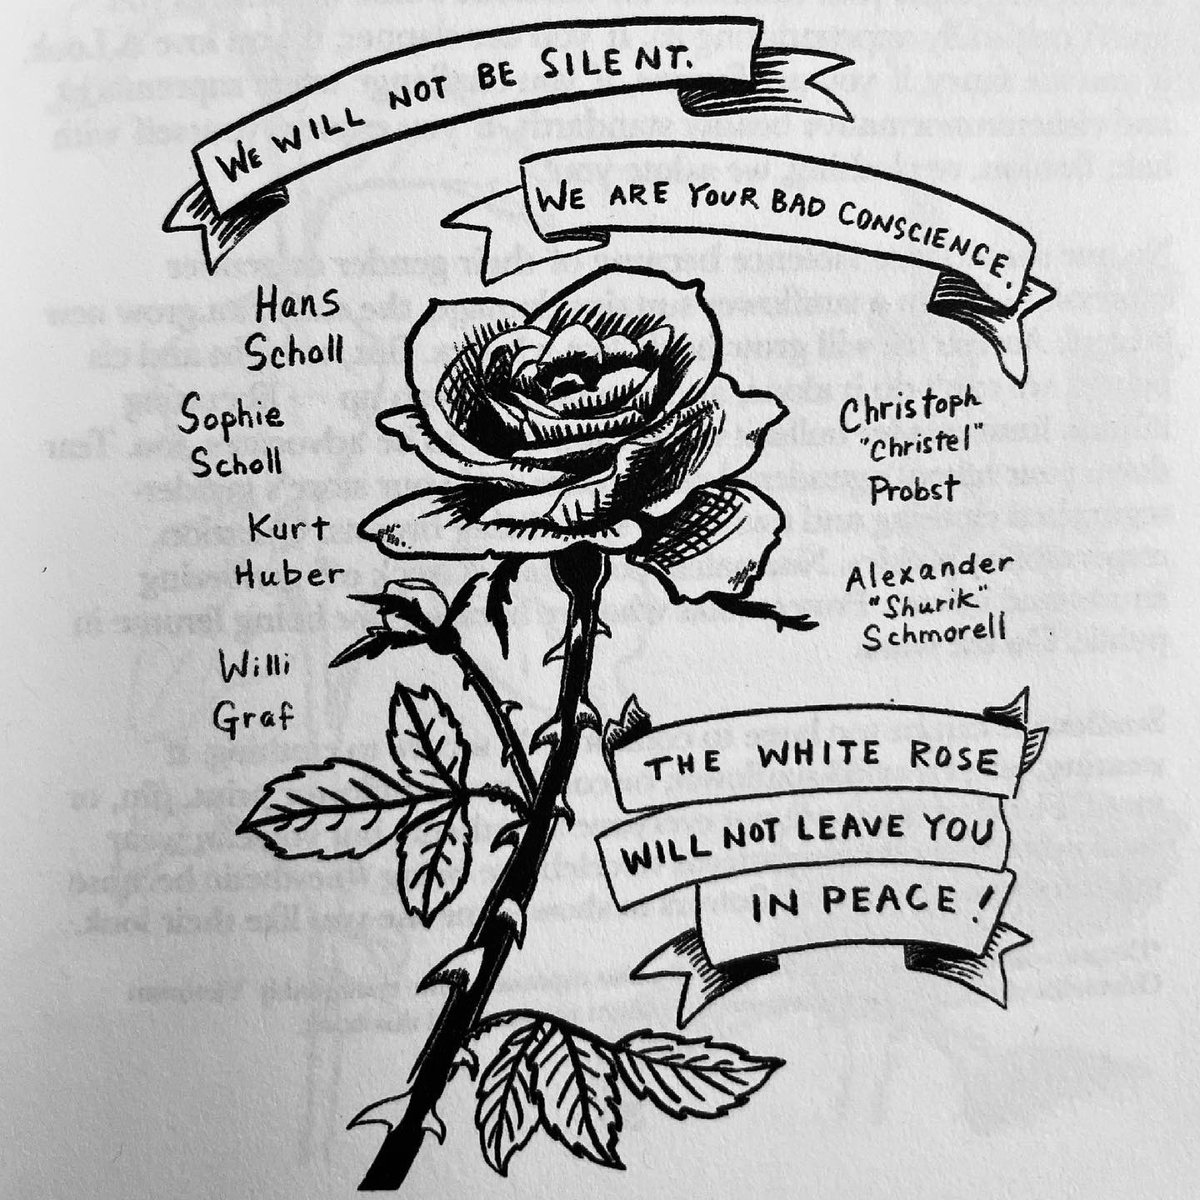 WE WILL NOT BE SILENT.
WE ARE YOUR BAD CONSCIENCE.
Hans
Scholl
Sophie
Scholl
Kurt
Huber
Willi
Graf
Christoph
"Christel"
Probst
Alexander
"Shurik"
Schmorell
THE WHITE ROSE
WILL NOT LEAVE YOU
IN PEACE!